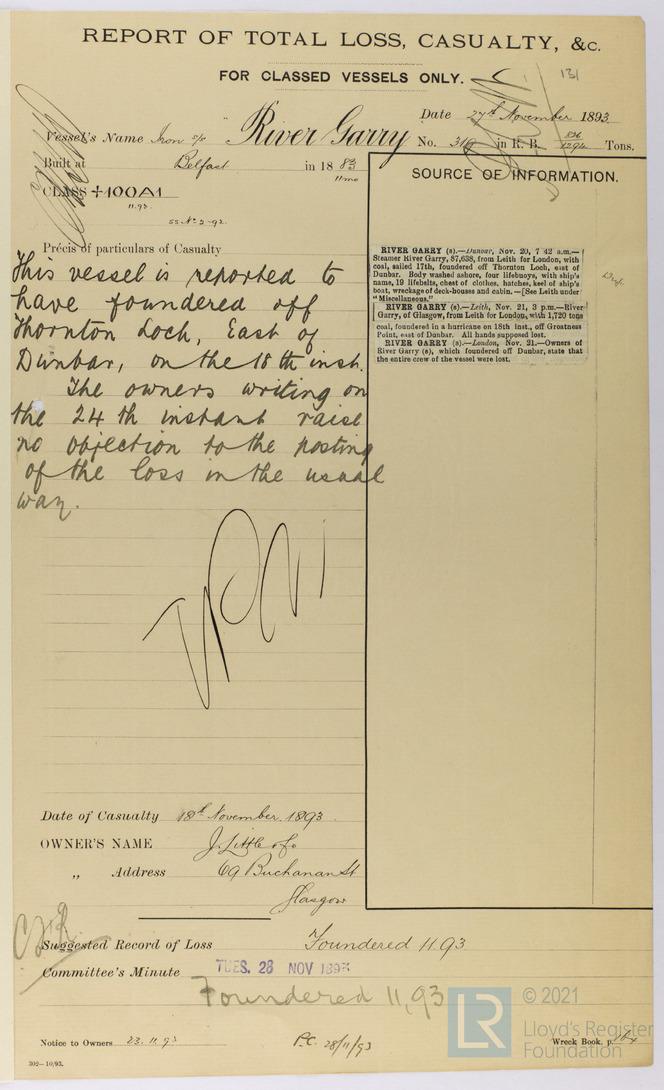 REPORT OF TOTAL LOSS, CASUALTY, &c.
FOR CLASSED VESSELS ONLY.
131
Date 27th November 1893
Vessel's Name Iron s/s "River Garry
No. 319 in R. B. 836 1294 Tons.
Built at Belfast in 1883
11mo
CLASS +100A1
11.93
SS No 2-92.
SOURCE OF INFORMATION.
Précis of particulars of Casualty
This vessel is reported to
have foundered off
Thornton Loch, East of
Dunbar, on the 18th inst.
The owners writing on
the 24th instant raise
no objection to the posting
of the loss in the usual
way.
RIVER GARRY (s).—Dunbar, Nov. 20, 7 42 a.m.—
Steamer River Garry, 87,638, from Leith for London, with
coal, sailed 17th, foundered off Thornton Loch, east of
Dunbar. Body washed ashore, four lifebuoys, with ship's
name, 19 lifebelts, chest of clothes, hatches, keel of ship's
boat, wreckage of deck-houses and cabin.—[See Leith under
"Miscellaneous."
RIVER GARRY (s).—Leith, Nov. 21, 3 p.m.—River
Garry, of Glasgow, from Leith for London, with 1,720 tons
coal, foundered in a hurricane on 18th inst., off Greatness
Point, east of Dunbar. All hands supposed lost.
RIVER GARRY (s).—London, Nov. 21.—Owners of
River Garry (s), which foundered off Dunbar, state that
the entire crew of the vessel were lost.
Date of Casualty 18th November 1893
OWNER'S NAME J. Little & Co
„ Address 69 Buchanan St
Glasgow
Suggested Record of Loss Foundered 11.93
Committee's Minute TUES. 28 NOV 1893
Foundered 11,93
Notice to Owners 23.11.93
P.C. 28/11/93
Wreck Book, p.
302—10/93.
LR
© 2021
Lloyd's Register
Foundation